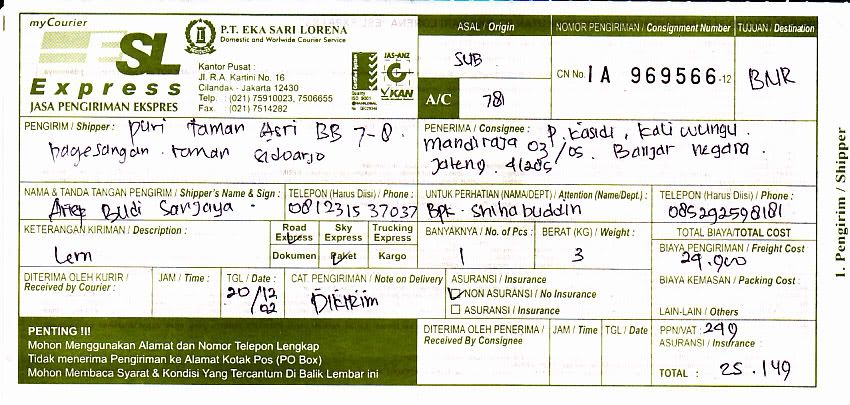 myCourier
ESL
Express
JASA PENGIRIMAN EKSPRES
P.T. EKA SARI LORENA
Domestic and Worlwide Courier Service
Kantor Pusat :
Jl. R.A. Kartini No. 16
Cilandak - Jakarta 12430
Telp. : (021) 75910023, 7506655
Fax : (021) 7514282
JAS-ANZ
KAN
ASAL / Origin
SUB
A/C
781
NOMOR PENGIRIMAN / Consignment Number
CN No. 1A 969566-12
TUJUAN / Destination
BNR
PENGIRIM / Shipper :
puri taman Asri BB 7-8.
pagesangan. taman sidoarjo
PENERIMA / Consignee :
P. Kasidi, Kali wungu.
mandiraja 03/05. Banjar negara.
Jateng.
NAMA & TANDA TANGAN PENGIRIM / Shipper's Name & Sign :
Arief Budi Sanjaya.
TELEPON (Harus Diisi) / Phone :
0812315 37037
UNTUK PERHATIAN (NAMA/DEPT) / Attention (Name/Dept.) :
Bpk. Shihabuddin
TELEPON (Harus Diisi) / Phone :
085292598181
KETERANGAN KIRIMAN / Description :
Lem
Road Express
Sky Express
Trucking Express
Dokumen
Paket
Kargo
BANYAKNYA / No. of Pcs :
1
BERAT (KG) / Weight :
3
TOTAL BIAYA/TOTAL COST
BIAYA PENGIRIMAN / Freight Cost
BIAYA KEMASAN / Packing Cost :
LAIN-LAIN / Others
PPN/VAT : 249
ASURANSI / Insurance :
TOTAL : 25.149
DITERIMA OLEH KURIR /
Received by Courier :
JAM / Time :
TGL / Date :
20/12
02
CAT. PENGIRIMAN / Note on Delivery
DIKIRIM
ASURANSI / Insurance
NON ASURANSI / No Insurance
ASURANSI / Insurance
PENTING !!!
Mohon Menggunakan Alamat dan Nomor Telepon Lengkap
Tidak menerima Pengiriman ke Alamat Kotak Pos (PO Box)
Mohon Membaca Syarat & Kondisi Yang Tercantum Di Balik Lembar ini
DITERIMA OLEH PENERIMA /
Received By Consignee
JAM / Time
TGL / Date
1. Pengirim / Shipper